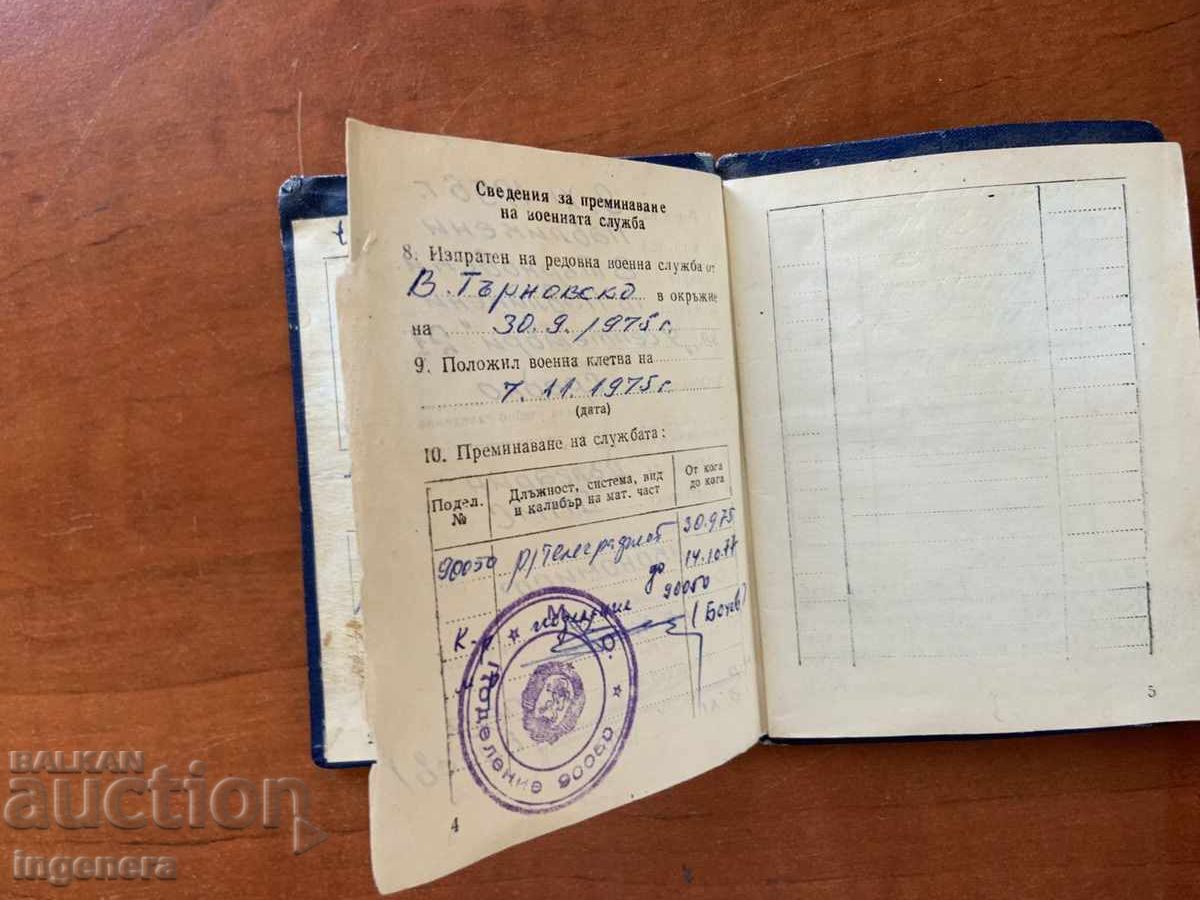 Сведения за преминаване
на военната служба
8. Изпратен на редовна военна служба от
В. Търновско в окръжие
на 30.9.1975 г.
9. Положил военна клетва на
7.11.1975 г.
(дата)
10. Преминаване на службата:
Подел. №
Длъжност, система, вид и калибър на мат. част
От кога до кога
90050 р/телеграфист 30.9.75
до 14.10.77
К-р поделение 90050
(Бочев)
Поделение 90050
4
5
BALKAN
auction
ingenera